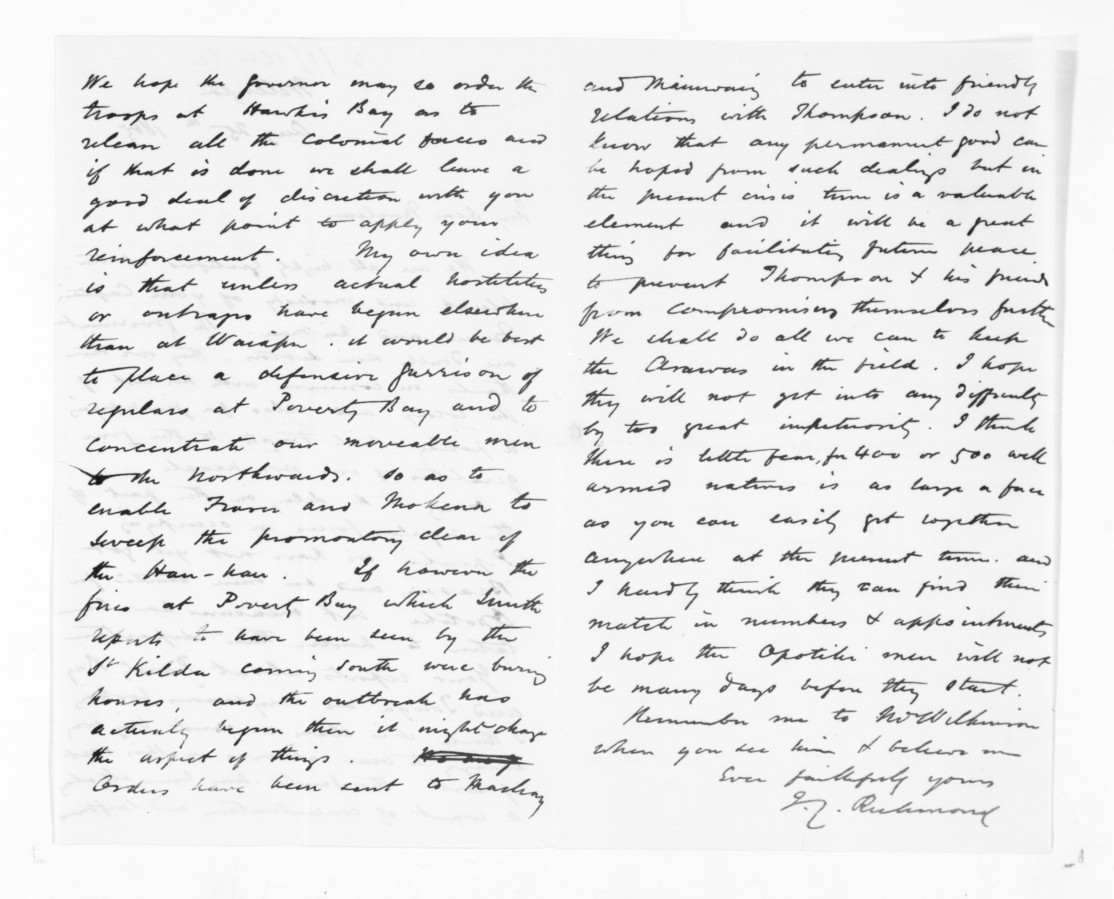 We hope the Governor may so order the
troops at Hawke's Bay as to
release all the Colonial forces and
if that is done we shall leave a
good deal of discretion with you
at what point to apply your
reinforcement. My own idea
is that unless actual hostilities
or outrages have begun elsewhere
than at Waiapu. it would be best
to place a defensive garrison of
regulars at Poverty Bay and to
concentrate our moveable men
to the Northwards. so as to
enable Fraser and Mokena to
sweep the promontory clear of
the Hau-hau. If however the
fires at Poverty Bay which Smith
reports to have been seen by the
St Kilda coming south were burning
houses, and the outbreak has
actually begun then it might change
the aspect of things.
Orders have been sent to Mackay
and to enter into friendly
relations with Thompson. I do not
know that any permanent good can
be hoped from such dealings but in
the present crisis time is a valuable
element and it will be a great
thing for facilitating future peace
to prevent Thompson & his friends
from compromising themselves further
We shall do all we can to keep
the Arawas in the field. I hope
they will not get into any difficulty
by too great impetuosity. I think
there is little fear, for 400 or 500 well
armed natives is as large a force
as you can easily get together
anywhere at the present time. and
I hardly think they can find their
match in numbers & appointments
I hope the Opotiki men will not
be many days before they start.
Remember me to Mr Wilkinson
when you see him & believe me
Ever faithfully yours
J.C. Richmond